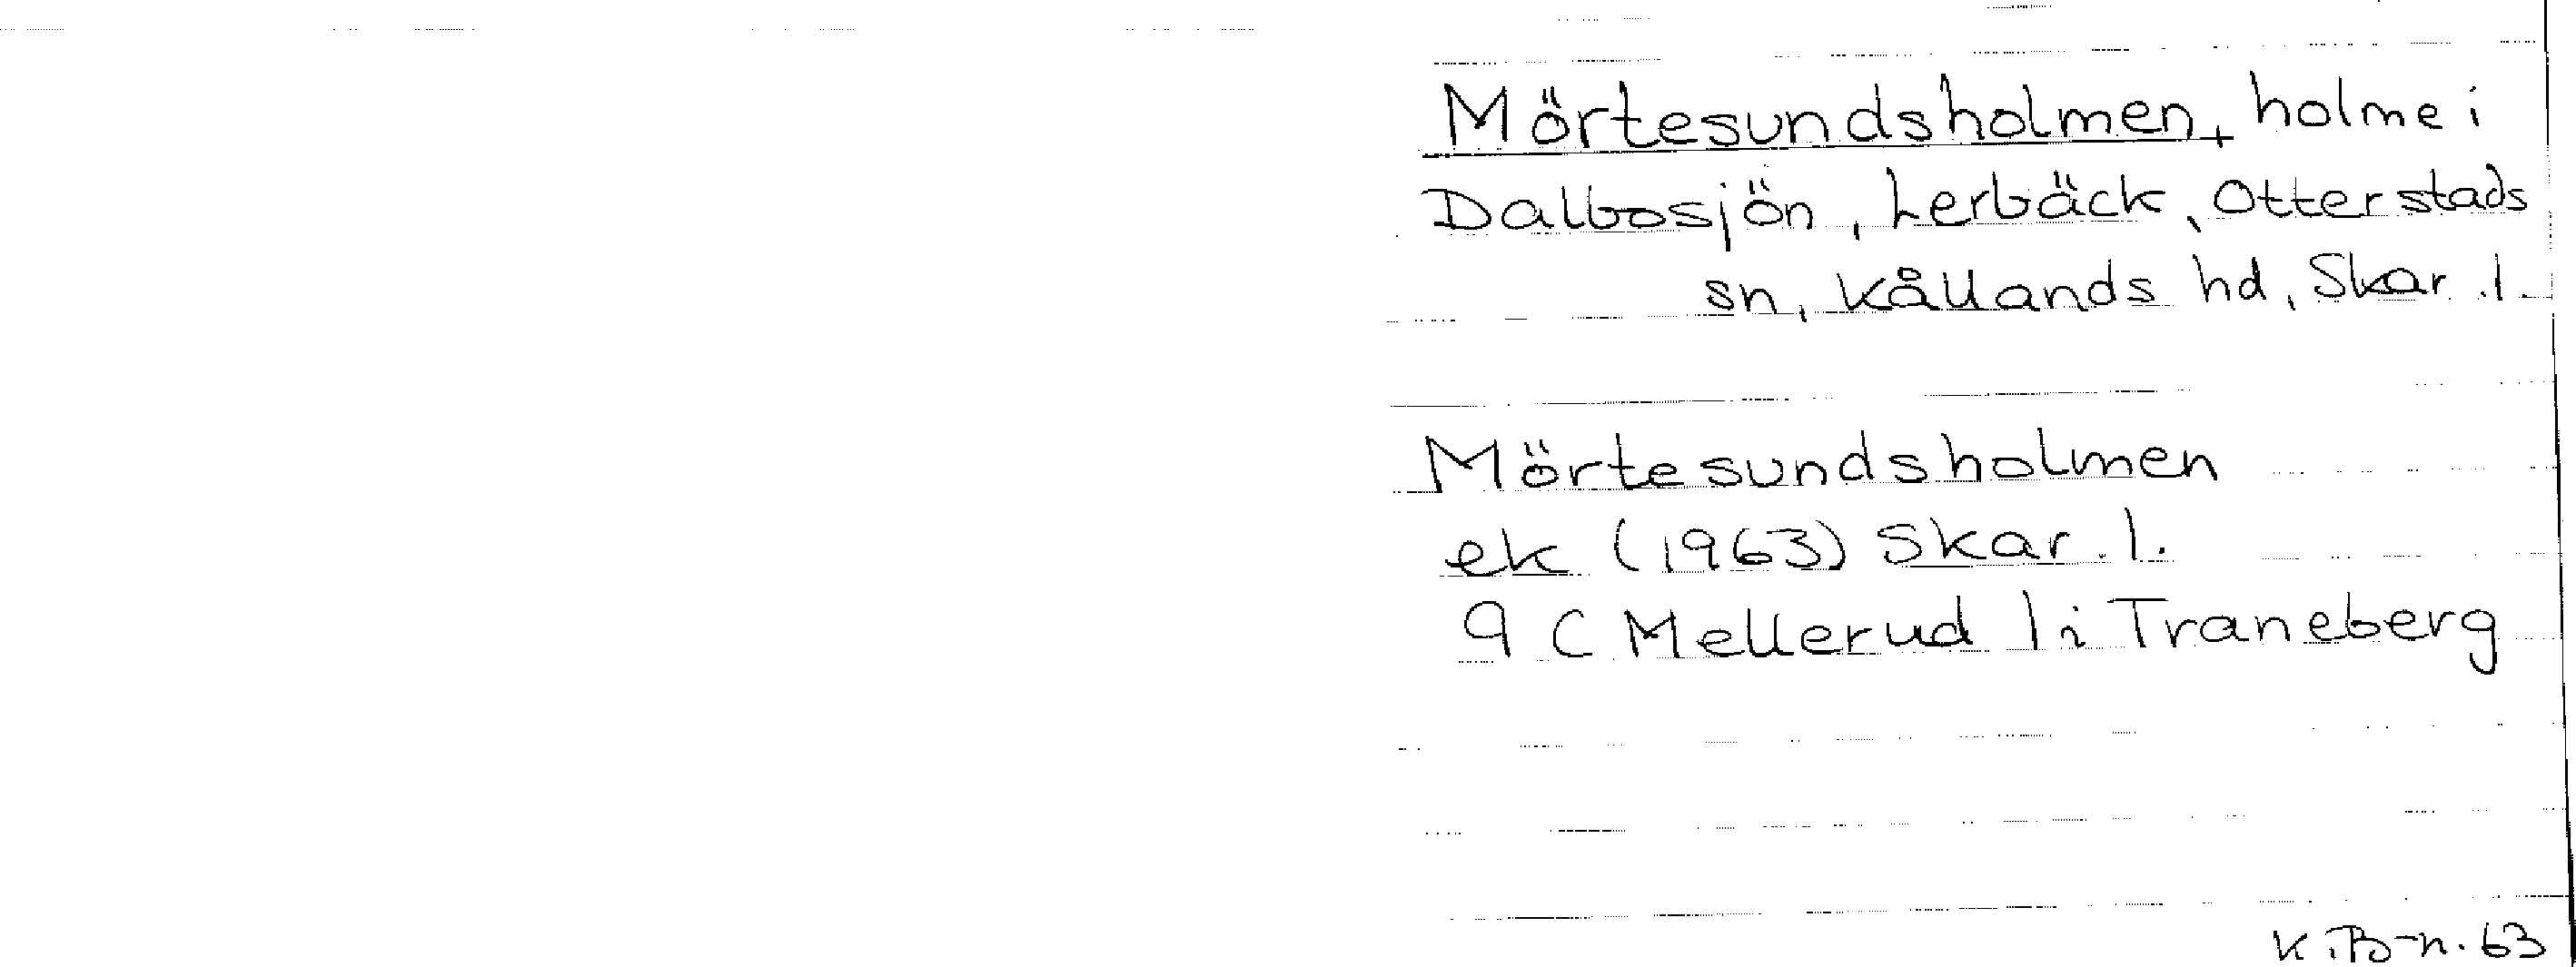 Mörtesundsholmen, holme i
Dalbosjön, Lerbäck, Otterstads
sn, Kållands hd, Skar. l.
Mörtesundsholmen
ek (1963) Skar. l.
9 C Mellerud 1 i Traneberg
K. B-n. 63